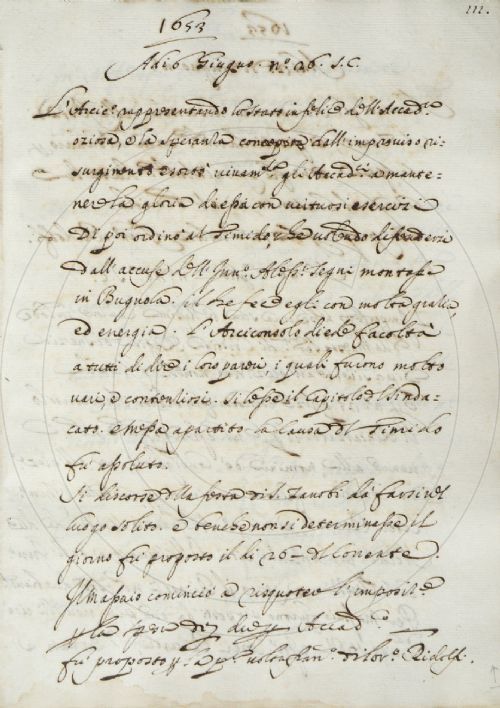 111.
1653
Adi 6 Giugno. n.º 26. S.C.
L'Arcic.º rappresentando lo stato infelice dell'Accad.ª
oziosa, e la speranza concepita dall'improviso ri-
surgimento esortò vivam.te gli Accad.ci a mante-
nere la gloria de essa con virtuosi esercizi
Di poi ordinò al Timido che volendo difendersi
dall'accuse dell' Aless.º Segni montasse
in Bugnola. il che fece egli con molta grazia,
ed energia. L'Arciconsolo diede facoltà
a tutti di dire i loro pareri, i quali furono molto
vari, e contenziosi. Si lesse il Capitolo del Sinda-
cato. e messa a partito la Causa del Timido
fù assoluto.
Si discorse della festa di S. Zanobi da farsi nel
luogo solito. e benche non si determinasse il
giorno fù proposto il di 26 del Corrente.
Il Massaio cominciò a risquotere l'imposiz.e
p la spesa de Accad.
fù proposto p la p.ª volta Fran.º di Lor.º Ridolfi.